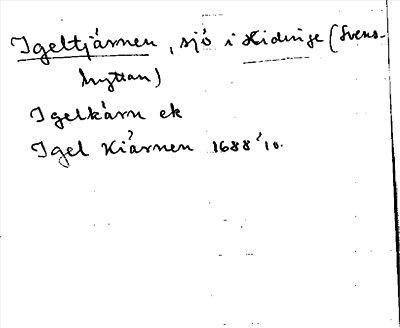 Igeltjärnen, sjö i Hidinge (Svens-
hyttan)
Igelkärn ek
Igel Kiärnen 1688 10.